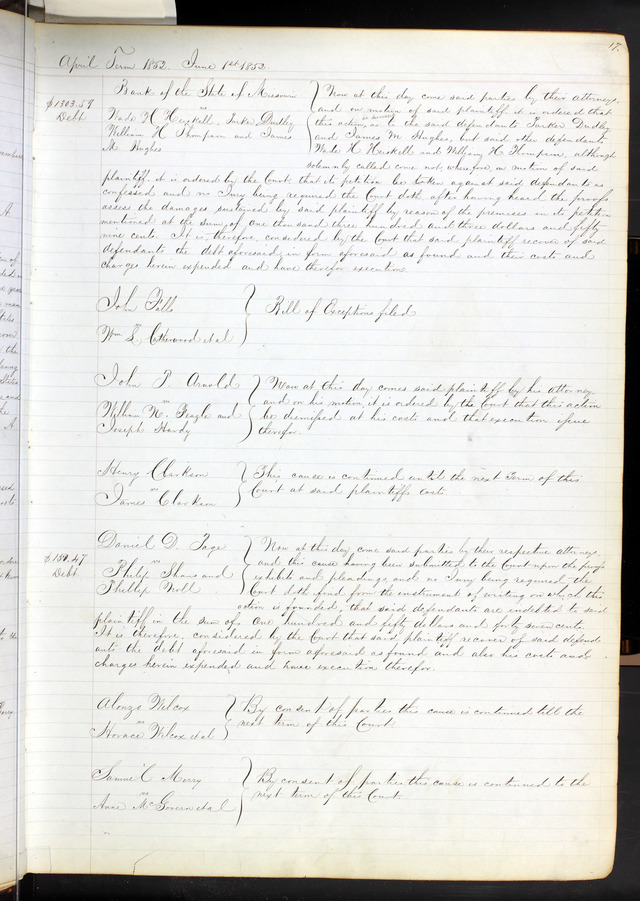 17.
April Term 1852. June 1st 1852.
Bank of the State of Missouri
$1303.59
Debt
vs
Wade H Heiskell, Parker Dudley
William H Thompson and James
M Hughes
Now at this day come said parties by their attorneys,
and on motion of said plaintiff it is ordered that
this action as to the said defendants Parker Dudley
and James M Hughes, but said other defendants
Wade H Heiskell and William H Thompson, although
solemnly called come not, wherefore, on motion of said
plaintiff, it is ordered by the Court that its petition be taken against said defendants as
confessed and no Jury being required the Court doth after having heard the proofs
assess the damages sustained by said plaintiff by reason of the premises in its petition
mentioned at the sum of one thousand three hundred and three dollars and fifty
nine cents. It is, therefore, considered by the Court that said plaintiff recover of said
defendants the debt aforesaid in form aforesaid as found and their costs and
charges herein expended and have therefor execution.
John Falls
Wm L Catherwood et al
Bill of Exceptions filed
John P. Arnold
vs
William N. Beagle and
Joseph Hardy
Now at this day comes said plaintiff by his attorney
and on his motion, it is ordered by the Court that this action
be dismissed at his costs and that execution issue
therefor.
Henry Clarkson
vs
James Clarkson
This cause is continued until the next Term of this
Court at said plaintiffs costs.
Daniel D. Page
$150.47
Debt
vs
Philip Shans and
Phillip Noll
Now at this day, come said parties by their respective attorneys
and this cause having been submitted to the Court upon the proofs
exhibits and pleadings, and no Jury being required the
Court doth find from the instrument of writing on which this
action is founded, that said defendants are indebted to said
plaintiff in the sum of One hundred and fifty dollars and forty seven cents.
It is therefore, considered by the Court that said plaintiff recover of said defend
ants the debt aforesaid in form aforesaid as found and also his costs and
charges herein expended and have execution therefor.
Alonzo Wilcox
vs
Horace Wilcox et al
By consent of parties this cause is continued till the
next term of this Court.
Samuel C Merry
vs
Anne McGovern et al
By consent of parties this cause is continued to the
next term of this Court.